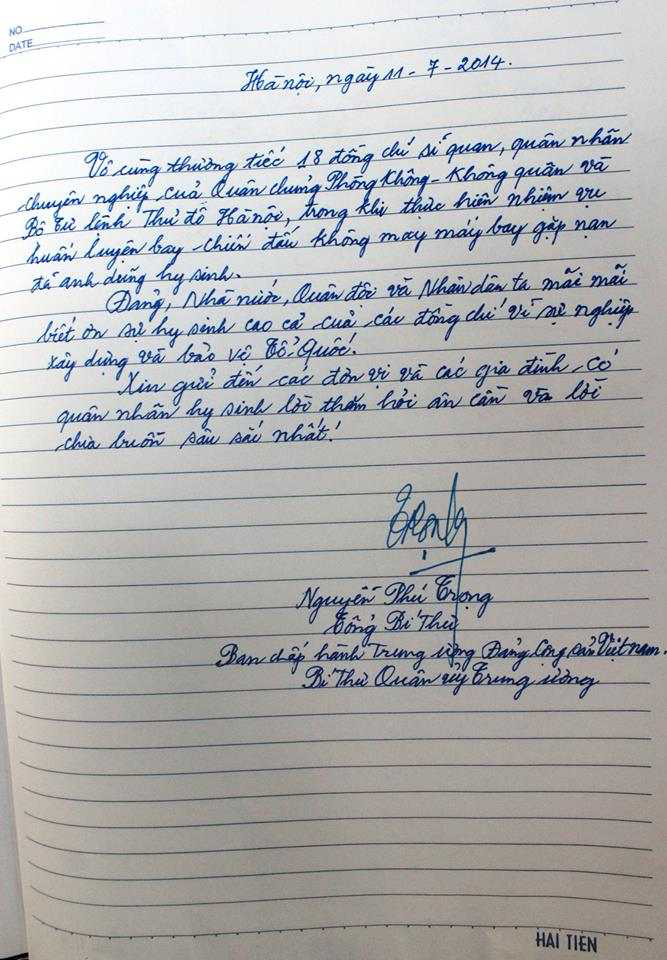 NO
DATE
Hà nội, ngày 11 - 7 - 2014.
Vô cùng thương tiếc 18 đồng chí sĩ quan, quân nhân
chuyên nghiệp của Quân chủng Phòng Không - Không quân và
Bộ Tư lệnh Thủ đô Hà nội, trong khi thực hiện nhiệm vụ
huấn luyện bay chiến đấu không may máy bay gặp nạn
đã anh dũng hy sinh.
Đảng, Nhà nước, Quân đội và Nhân dân ta mãi mãi
biết ơn sự hy sinh cao cả của các đồng chí vì sự nghiệp
xây dựng và bảo vệ Tổ Quốc.
Xin gửi đến các đơn vị và các gia đình có
quân nhân hy sinh lời thăm hỏi ân cần và lời
chia buồn sâu sắc nhất!
Trọng
Nguyễn Phú Trọng
Tổng Bí Thư
Ban chấp hành Trung ương Đảng Cộng sản Việt nam.
Bí Thư Quân ủy Trung ương
HẢI TIẾN